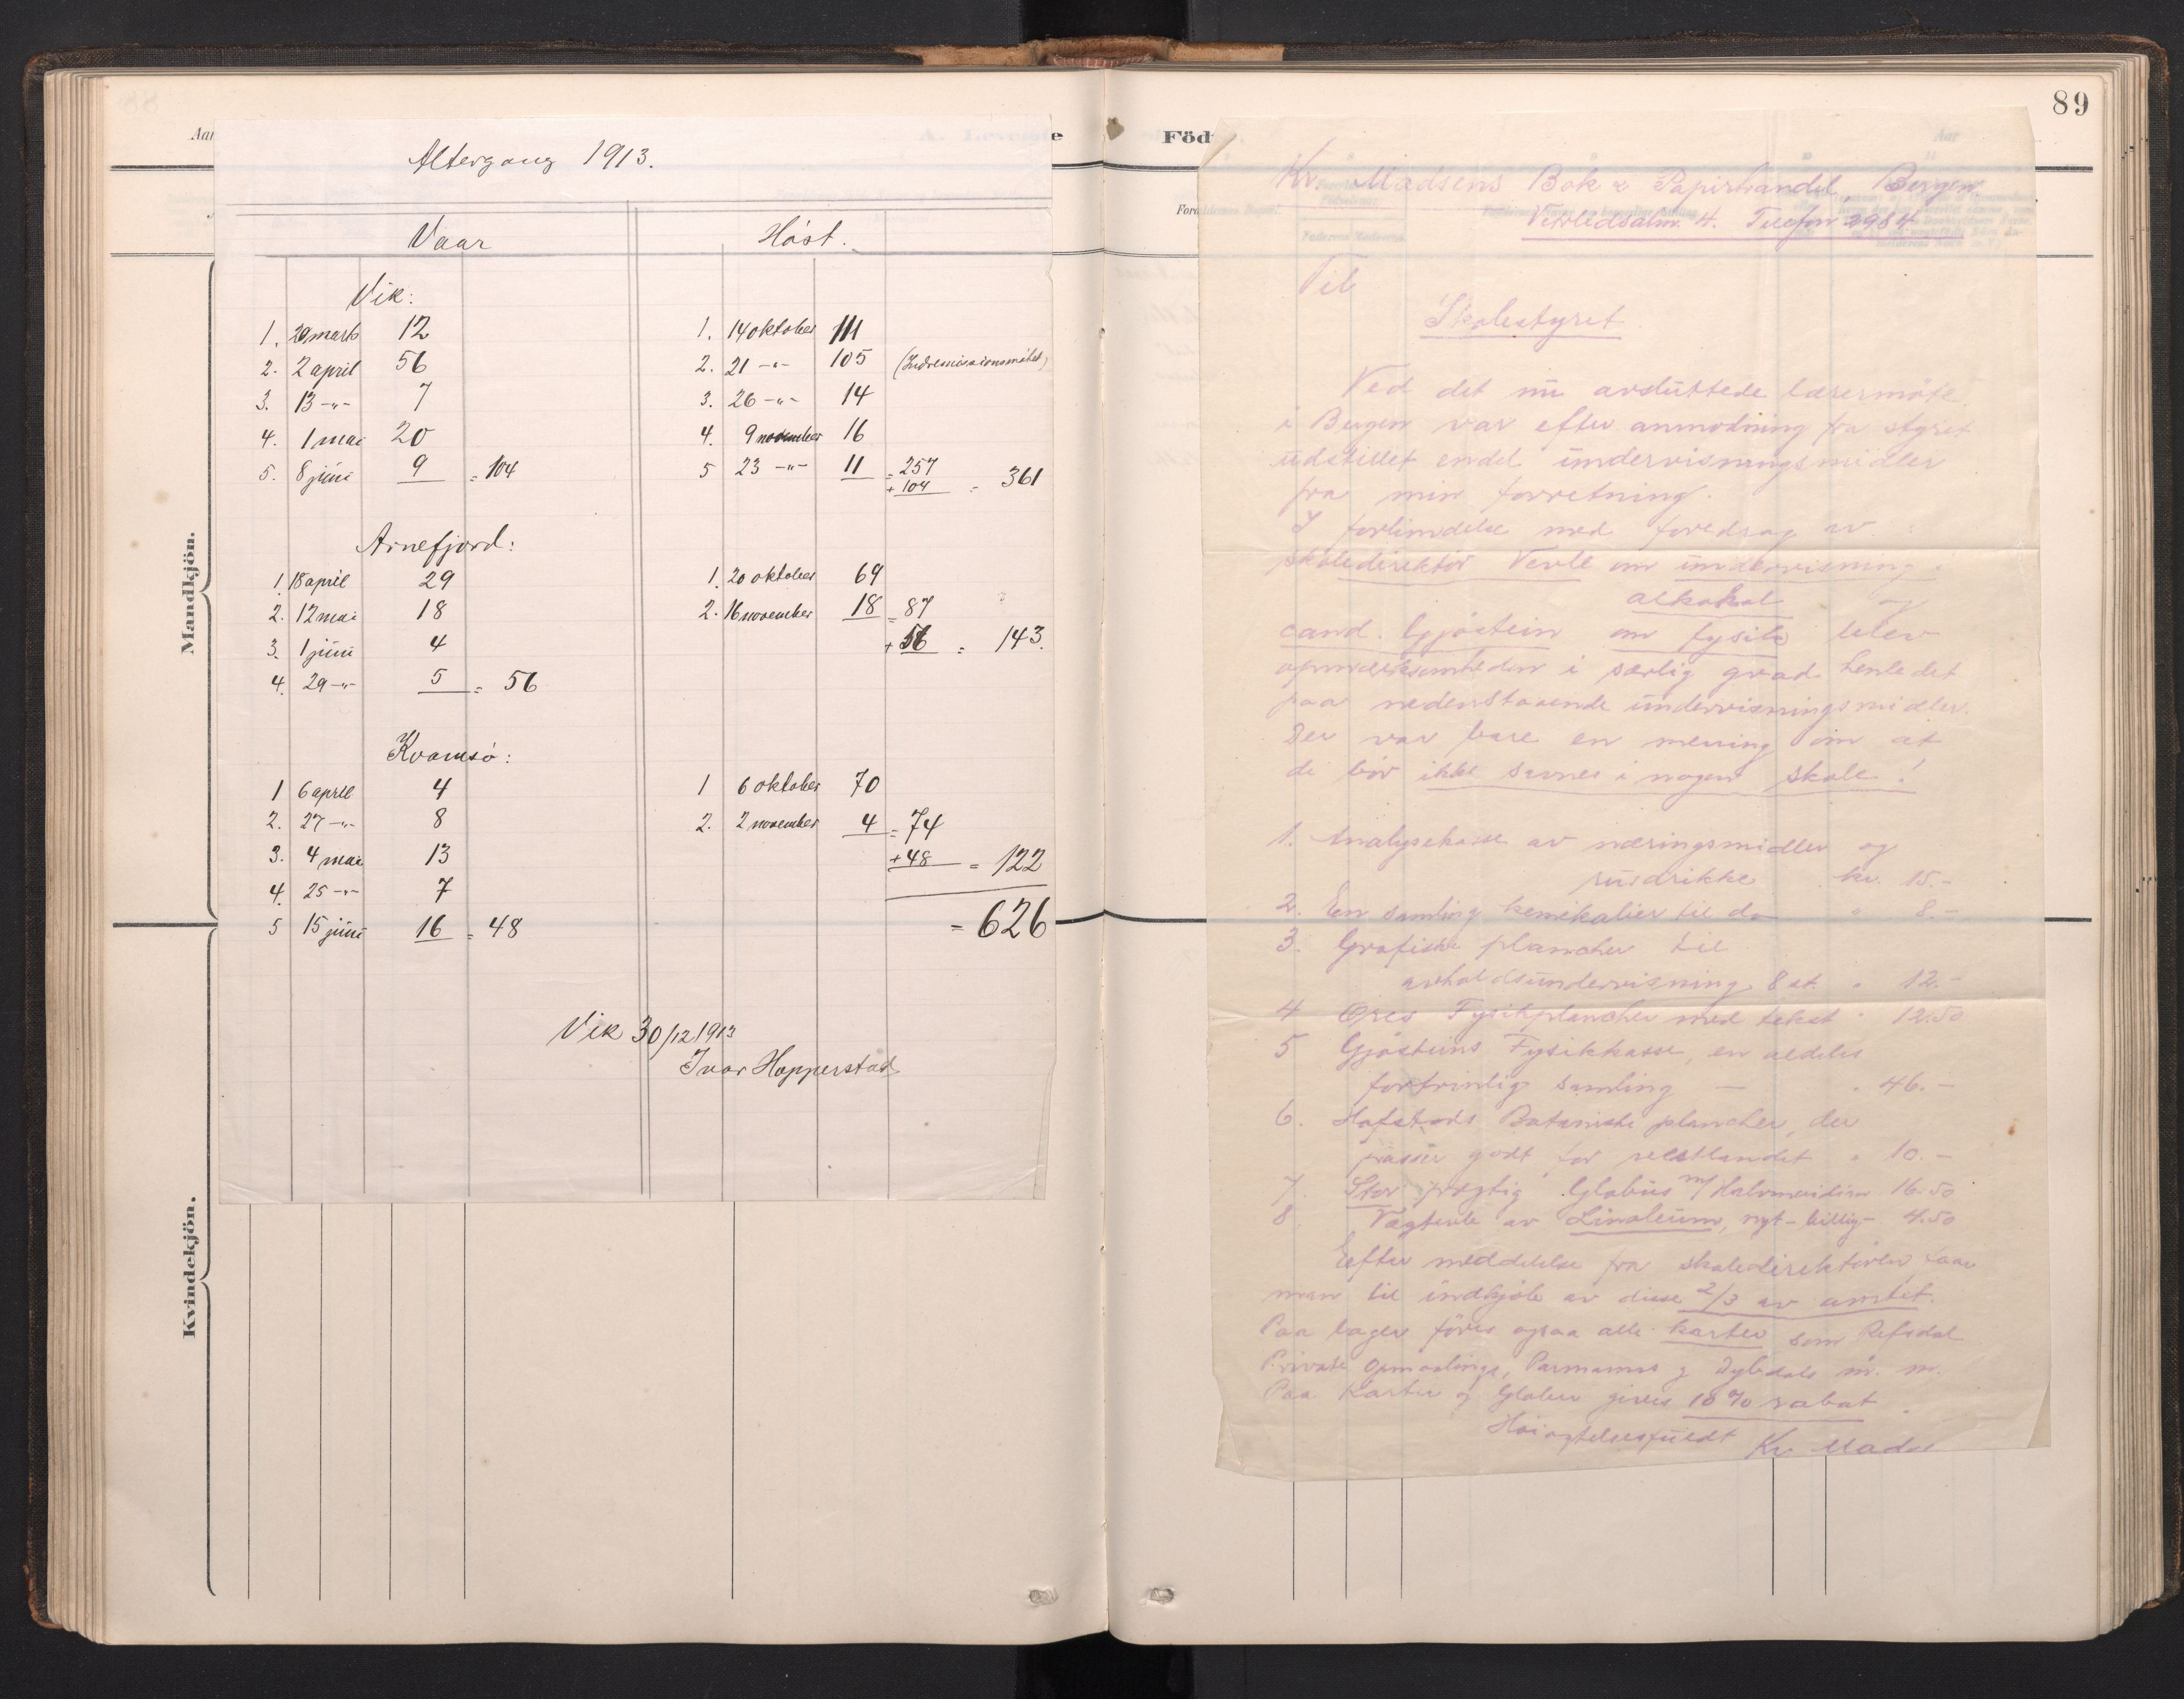 89
Aar
Föd
Mandkjön.
Kvindekjön.
Altergang 1913.
Vaar
Vik:
1. 20 marts 12
2. 2 april 56
3. 13 -"- 7
4. 1 mai 20
5. 8 juni 9 = 104
Arnefjord:
1. 18 april 29
2. 12 mai 18
3. 1 juni 4
4. 29 -"- 5 = 56
Kvamsö:
1 6 april 4
2. 27 -"- 8
3. 4 mai 13
4. 25 -"- 7
5 15 juni 16 = 48
Höst.
1. 14 oktober 111
2. 21 -"- 105 (Indremissionsmötet)
3. 26 -"- 14
4. 9 november 16
5 23 -"- 11 = 257
+ 104 = 361
1. 20 oktober 69
2. 16 november 18 = 87
+ 56 = 143.
1 6 oktober 70
2. 2 november 4 = 74
+ 48 = 122
= 626
Vik 30/12 1913
Ivar Hopperstad
Kr. Madsens Bok & Papirhandel, Bergen.
Telefon 2984
Til
Skolestyret
Ved det nu avsluttede lærermöte
i Bergen var efter anmodning fra styret
udstillet endel undervisningsmidler
fra min forretning.
I forbindelse med foredrag av
skoledirektör Verle om undervisning i
alkohol og
cand. Gjöstein om fysik blev
opmærksomheden i særlig grad henledet
paa nedenstaaende undervisningsmidler.
Der var bare en mening om at
de bör ikke savnes i nogen skole!
1. Analysekasse av næringsmidler og
rusdrikke kr. 15.-
2. En samling kemikalier til do " 8.-
3. Grafiske plancher til
avholdsundervisning 8 st. " 12.-
4 Fysikplancher med tekst " 12.50
5 Gjösteins Fysikkasse, en aldeles
fortrinlig samling — " 46.-
6. Hofstads Botaniske plancher, der
passer godt for vestlandet " 10.-
7. Stor prægtig Globus m/ Halvmeridian 16.50
8 Vægtavle av Linoleum, nyt - billig - 4.50
Efter meddelelse fra skoledirektören faar
man til indkjöb av disse 2/3 av amtet.
Paa lager föres ogsaa alle karter som Refsdal
Private Opmaalings, m. m.
Paa Karter og Glober gives 10% rabat.
Höiagtelsesfuldt Kr. Mads